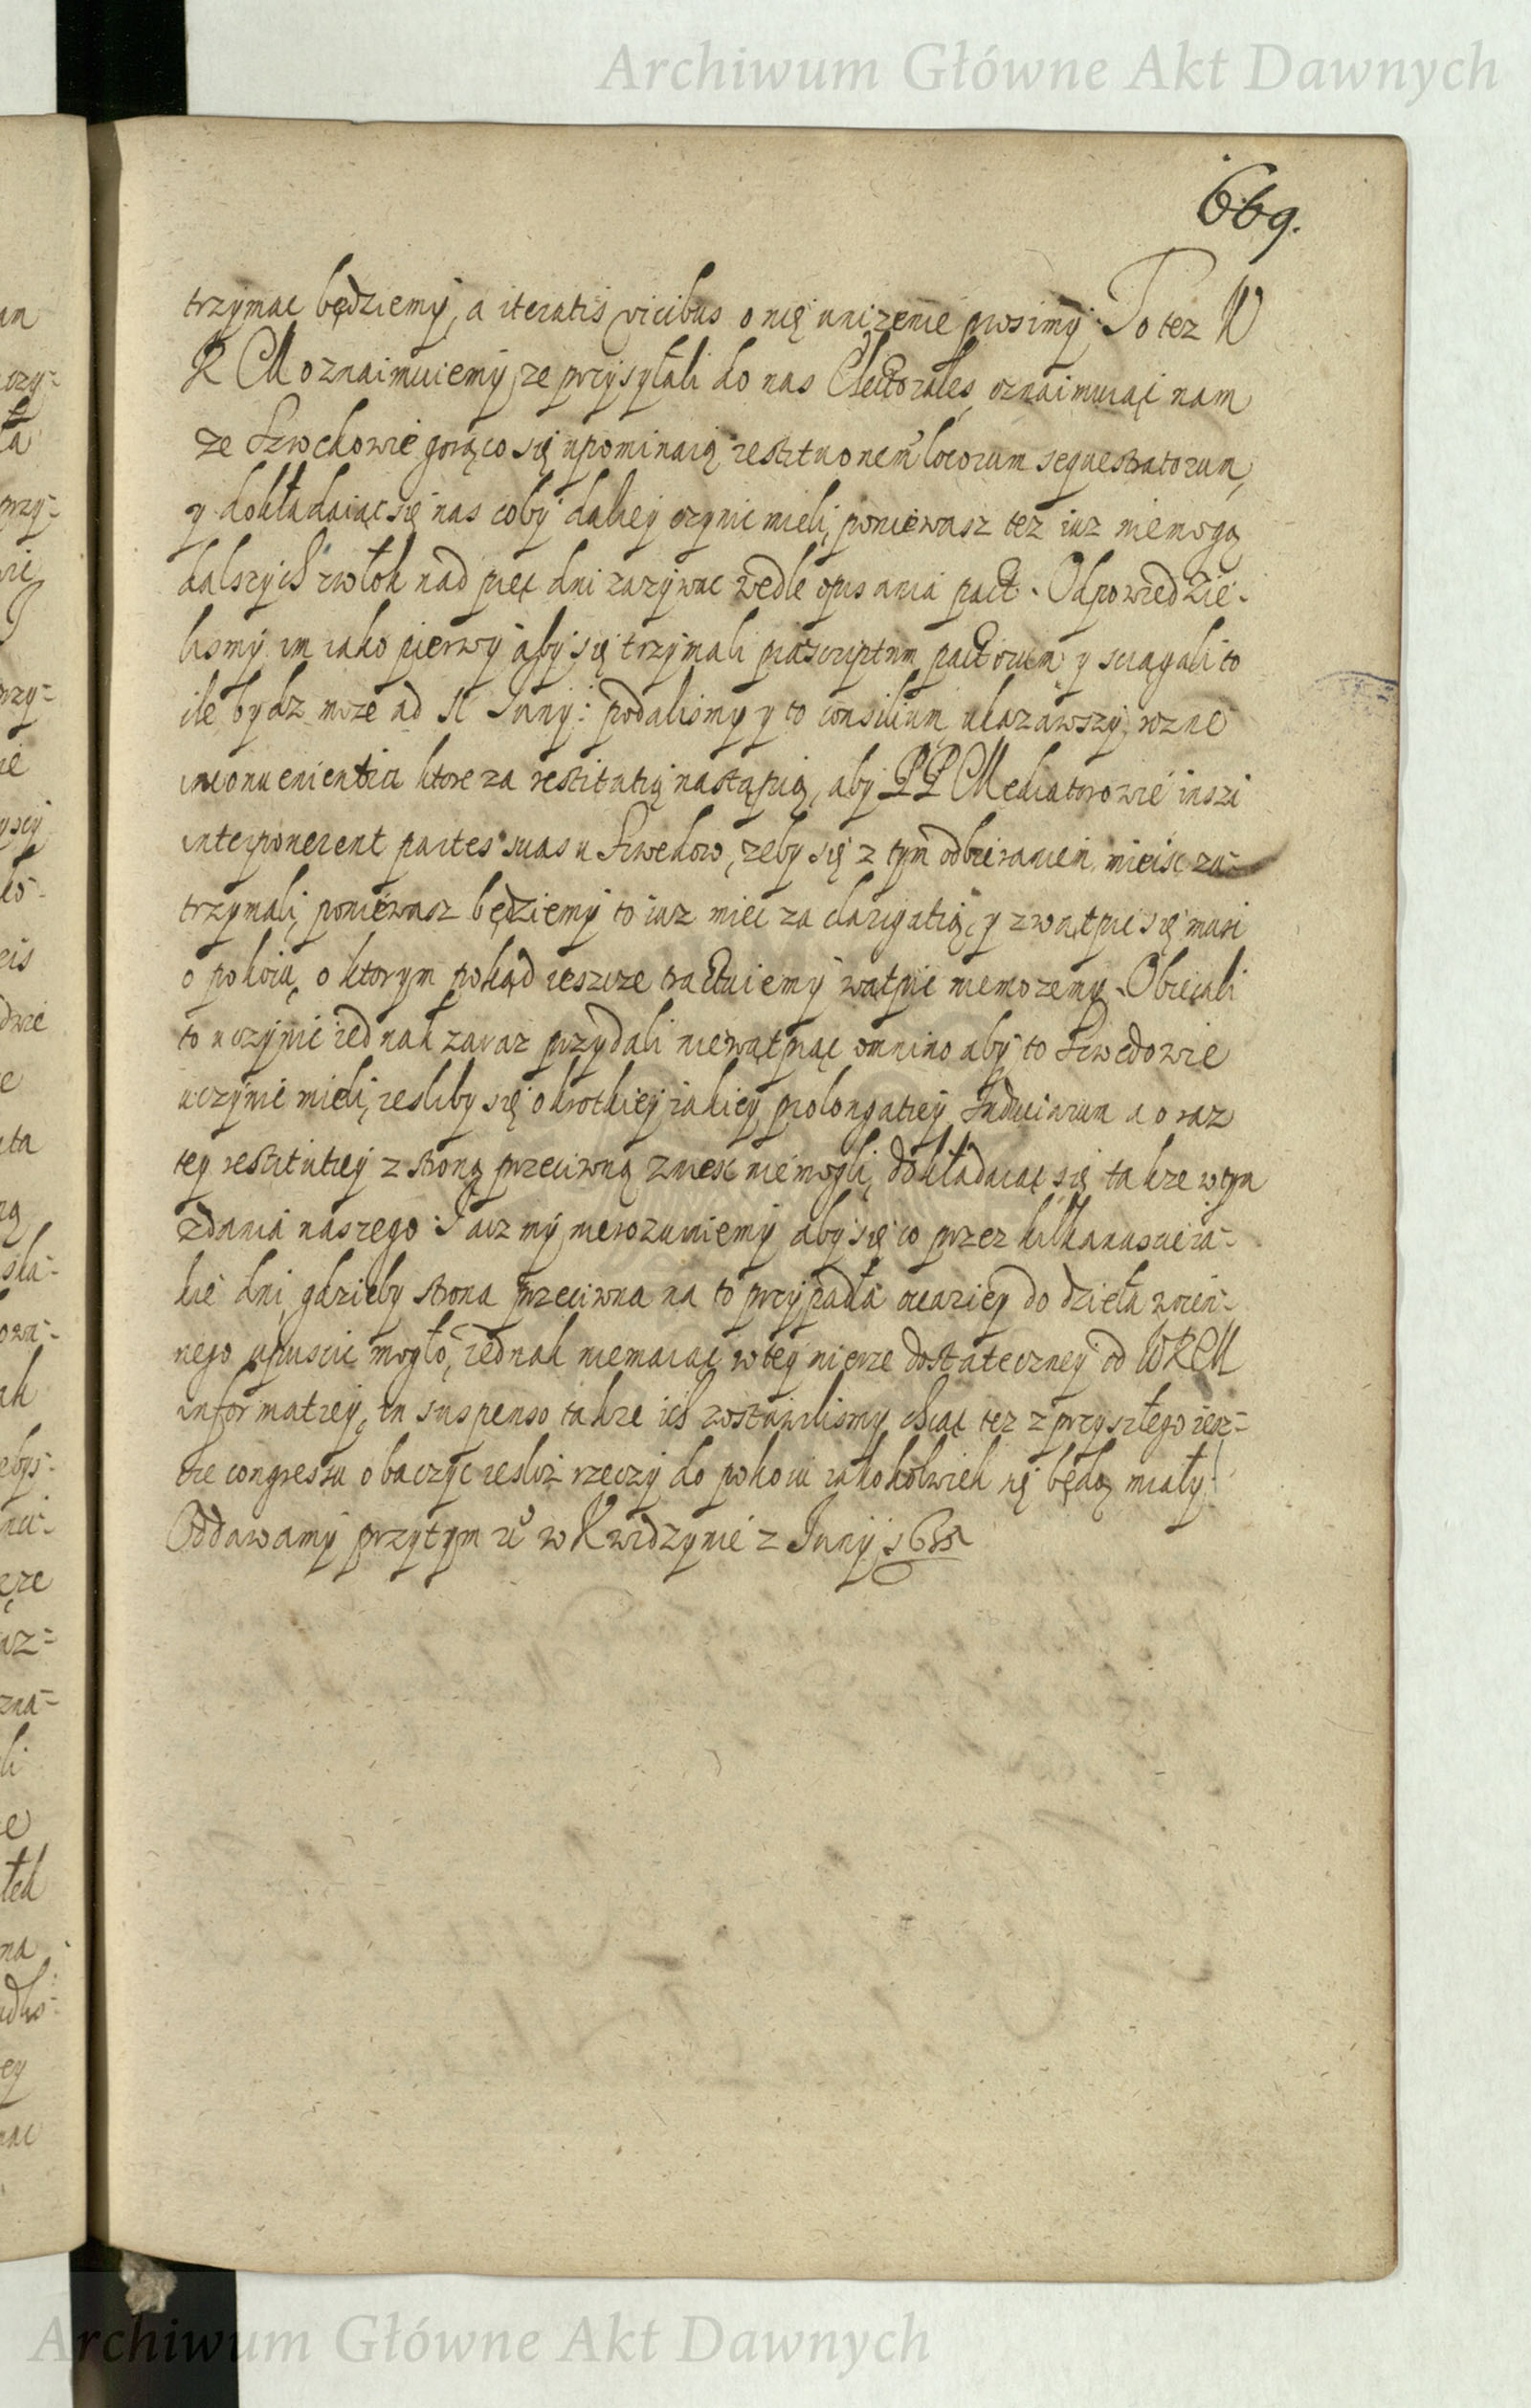 Archiwum Główne Akt Dawnych
669.
trzymac będziemy, a iteratis vicibus o nię unizenie prosimy. To tez W
K M oznaimuiemy, ze przysyłali do nas Electorales, oznaimuiąc nam
ze Szwedowie gorąco się upominaią restituonem locorum sequestratorum,
y dokładaiąc się nas coby daliey czynic mieli, poniewasz tez iuz niemogą
dalszych zwłok nad pięc dni zazywac wedle opisania pact. Odpowiedzie-
lismy im iako pierwy aby się trzymali praescriptum pactorum y sciągali to
ile bydz moze ad Junij: podalismy y to consilium ukazawszy rozne
inconuenientia ktore za restitutią nastąpią, aby PP Mediatorowie inszi
interponerent partes suas u Szwedow, zeby się z tym odbieraniem mieisc za-
trzymali, poniewasz będziemy to iuz miec za clarigatią, y zwątpic się musi
o pokoiu, o ktorym pokąd ieszcze tractuiemy wątpic niemozemy. Obiecali
to uczynic iednak zaraz przydali niewątpiąc omnino aby to Szwedowie
uczynic mieli, iesliby się o krotkiey iakiey prolongatiey Induciarum a oraz
tey restitutiey z stroną przeciwną zniesc niemogli, dokładaiąc się takze w tym
zdania naszego. I acz my nierozumiemy aby się co przez kilkanascie ia-
kie dni, gdzieby strona przeciwna na to przypadła ocaziey do dzieła woien-
nego upuscic mogło, iednak niemaiąc w tey mierze dostateczney od WKM
informatiey, in suspenso takze ich zostawilismy, chcąc tez z przyszłego iesz-
cze congressu obaczyc iesliz rzeczy do pokoiu iakokolwiek się będą miały.
Oddawamy przytym w Kwidzynie z Junij 1635
Archiwum Główne Akt Dawnych